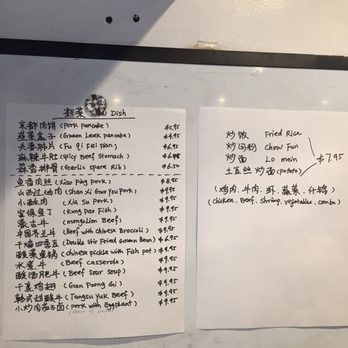 Dish
京都肉饼 (Pork pancake) $5.95
韭菜盒子 (Green Leek pancake) $4.95
夫妻肺片 (Fu Qi Fei Pian) $6.95
麻辣牛肚 (Spicy Beef Stomach) $6.95
蒜香排骨 (Garlic spare Rib) $6.50
鱼香肉丝 (Xiao Ping Pork) $8.95
山西过油肉 (Shan Xi Guo You Pork) $9.95
小酥肉 (Xia Su Pork) $9.95
宫保鱼丁 (Kung Pao Fish) $9.95
蒙古牛 (Mongolian Beef) $9.95
中国芥兰牛 (Beef with Chinese Broccoli) $9.95
干煸四季豆 (Double Stir Fried Green Bean) $6.95
酸菜鱼锅 (chinese pickle with Fish pot) $9.95
水煮牛 (Beef casserole) $9.95
酸汤肥牛 (Beef Sour Soup) $9.95
干烹鸡翅 (Gan Poong Gi) $9.95
韩式甜酸牛 (Tangsu Yuk Beef) $9.95
小炒肉茄子 (pork with Eggplant) $9.95
炒饭 Fried Rice
炒河粉 Chow Fun
炒面 Lo mein
土豆丝炒面 (potato)
$7.95
(鸡肉、牛肉、虾、蔬菜、什锦)
(chicken. Beef. Shrimp. vegetables. combo)